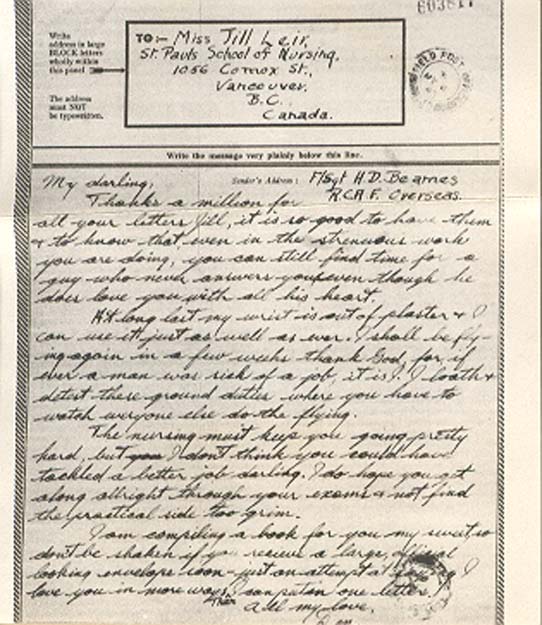 603811
Write
address in large
BLOCK letters
wholly within
this panel
The address
must NOT
be typewritten.
TO:- Miss Jill Leir,
St. Pauls School of Nursing,
1056 Comox St.,
Vancouver,
B.C.
Canada.
FIELD POST
Write the message very plainly below this line.
Sender's Address: F/Sgt H.D. Beames
R.C.A.F. Overseas.
My darling,
Thanks a million for
all your letters Jill, it is so good to have them
& to know that even in the strenuous work
you are doing, you can still find time for a
guy who never answers you, even though he
does love you with all his heart.
At long last my wrist is out of plaster & I
can use it just as well as ever. I shall be fly-
ing again in a few weeks thank God, for if
ever a man was sick of a job, it is I. I loath &
detest these ground duties where you have to
watch everyone else do the flying.
The nursing must keep you going pretty
hard, but you I dont think you could have
tackled a better job darling. I do hope you get
along allright through your exams & not find
the practical side too grim.
I am compiling a book for you my sweet, so
don't be shaken if you recieve a large, official
looking envelope soon - just an attempt at I
love you in more ways than I can put on one letter.
All my love,